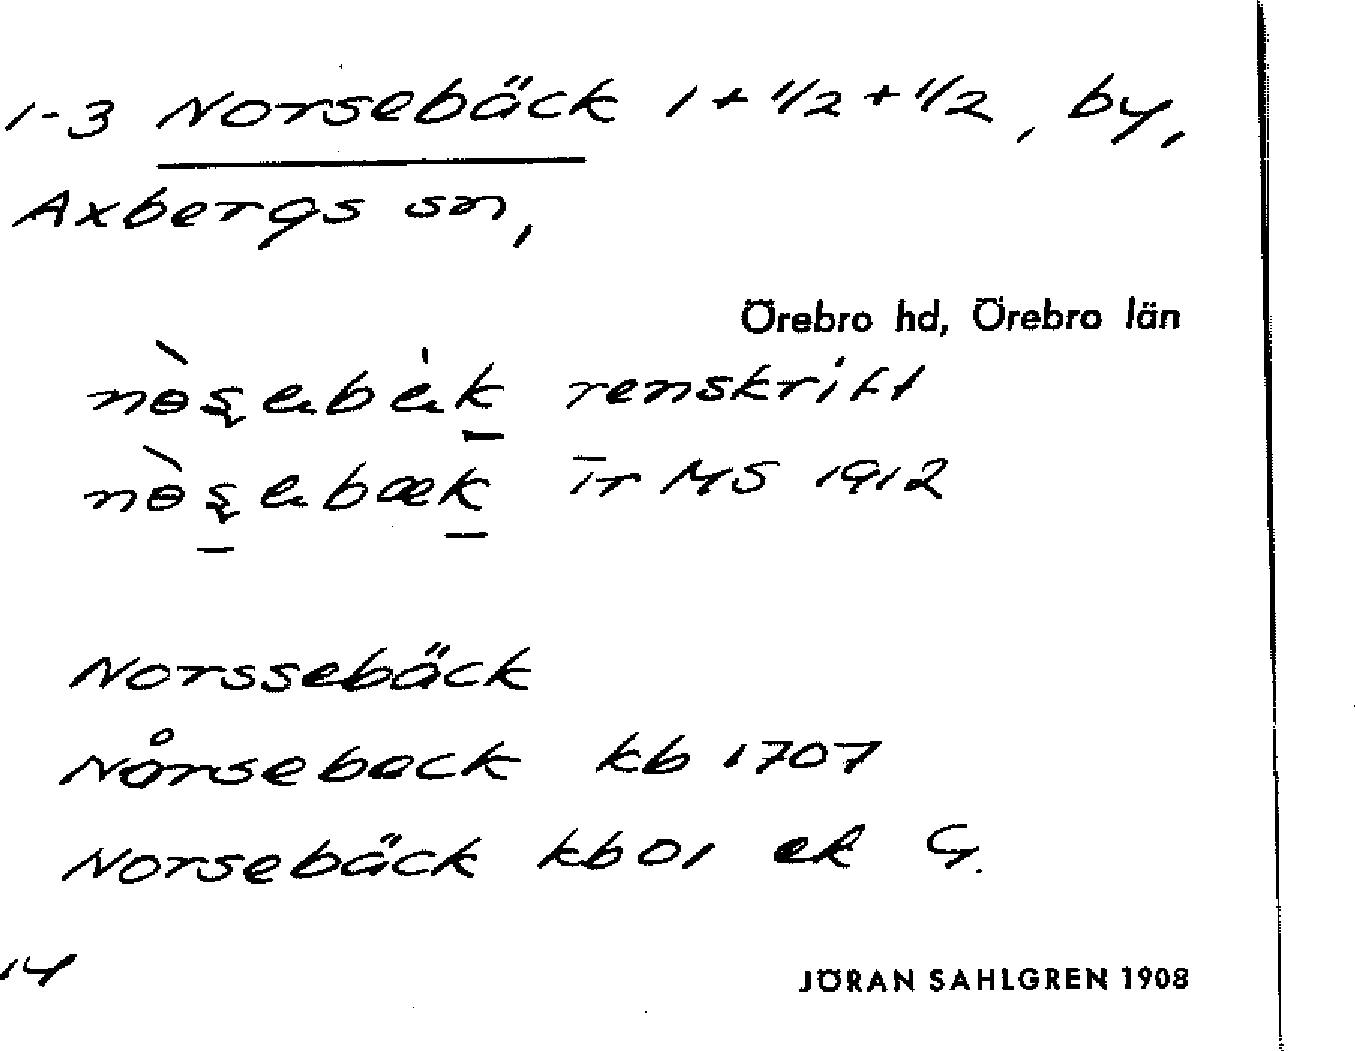 1-3 Norsebäck 1+1/2+1/2, by,
Axbergs sn,
Örebro hd, Örebro län
renskrift
MS 1912
Norssebäck
Nårseback kb 1707
Norsebäck kb 01 ek G.
14
JÖRAN SAHLGREN 1908